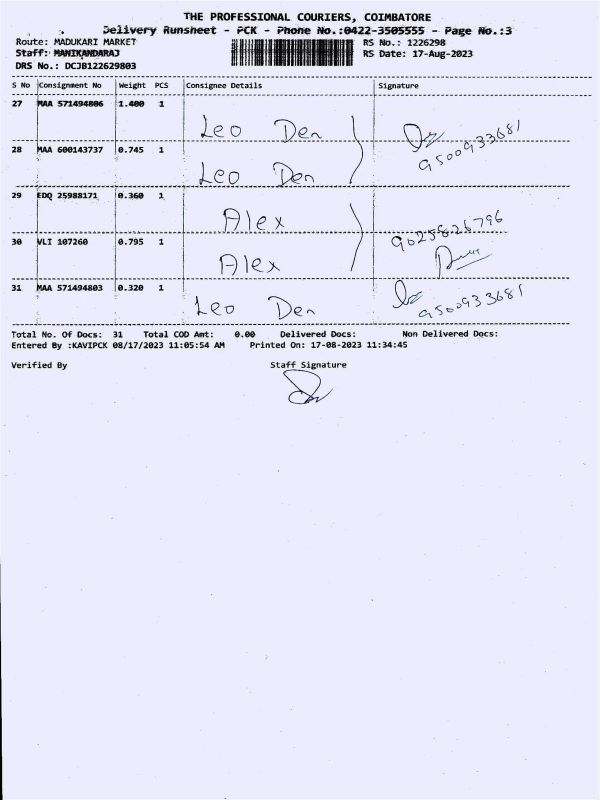 THE PROFESSIONAL COURIERS, COIMBATORE
Delivery Runsheet - PCK - Phone No.:0422-3505555 - Page No.:3
Route: MADUKARI MARKET RS No.: 1226298
Staff: MANIKANDARAJ RS Date: 17-Aug-2023
DRS No.: DCJB122629803
S No Consignment No Weight PCS Consignee Details Signature
27 MAA 571494806 1.400 1
Leo Den
9500933681
28 MAA 600143737 0.745 1
Leo Den
29 EDQ 25988171 0.360 1
Alex
9025826796
30 VLI 107260 0.795 1
Alex
31 MAA 571494803 0.320 1
Leo Den 9500933681
Total No. Of Docs: 31 Total COD Amt: 0.00 Delivered Docs: Non Delivered Docs:
Entered By :KAVIPCK 08/17/2023 11:05:54 AM Printed On: 17-08-2023 11:34:45
Verified By Staff Signature